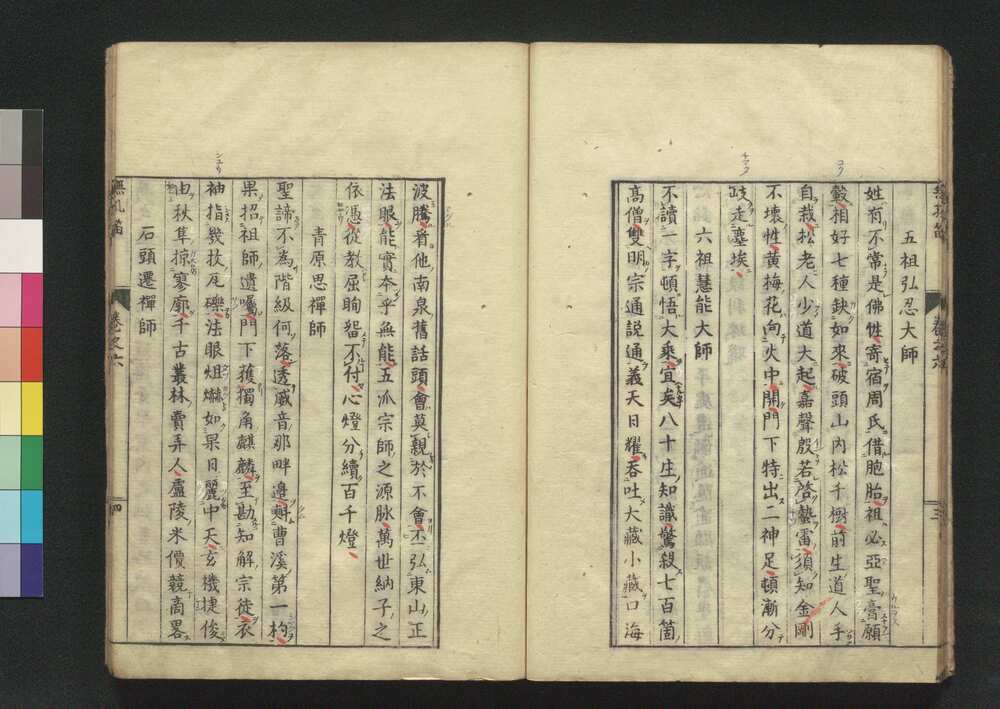 五祖弘忍大師
姓有不常是佛性寄宿周氏借胞胎祖必亞聖膏願
輪相好七種鈌如來破頭山內松千樹前生道人手
自栽松老人少道大起嘉聲殷若啓蟄雷須知金剛
不壞性黃梅花向火中開門下特出二神足頓漸分
岐走塵埃
六祖慧能大師
不讀一字頓悟大乘宜矣八十庄知識驚殺七百箇
高僧雙明宗通說通義天日耀吞吐大藏小藏口海
波騰看他南泉舊話頭會莫親於不會丕弘東山正
法眼能實本乎無能五派宗師之源脉萬世納子之
依憑從教屈眴留不付心燈分續百千燈
青原思禪師
聖諦不為階級何落透威音那畔邊㪺曹溪第一杓
果招祖師遺囑門下獲獨角麒麟至勘知解宗徒衣
袖指幾枚瓦礫法眼烜爀如果日麗中天玄機捷俊
由秋隼掠寥廓千古叢林賣弄人盧陵米價競商畧
石頭遷禪師
卷之六
四
三
コク
チマタ
シユツ